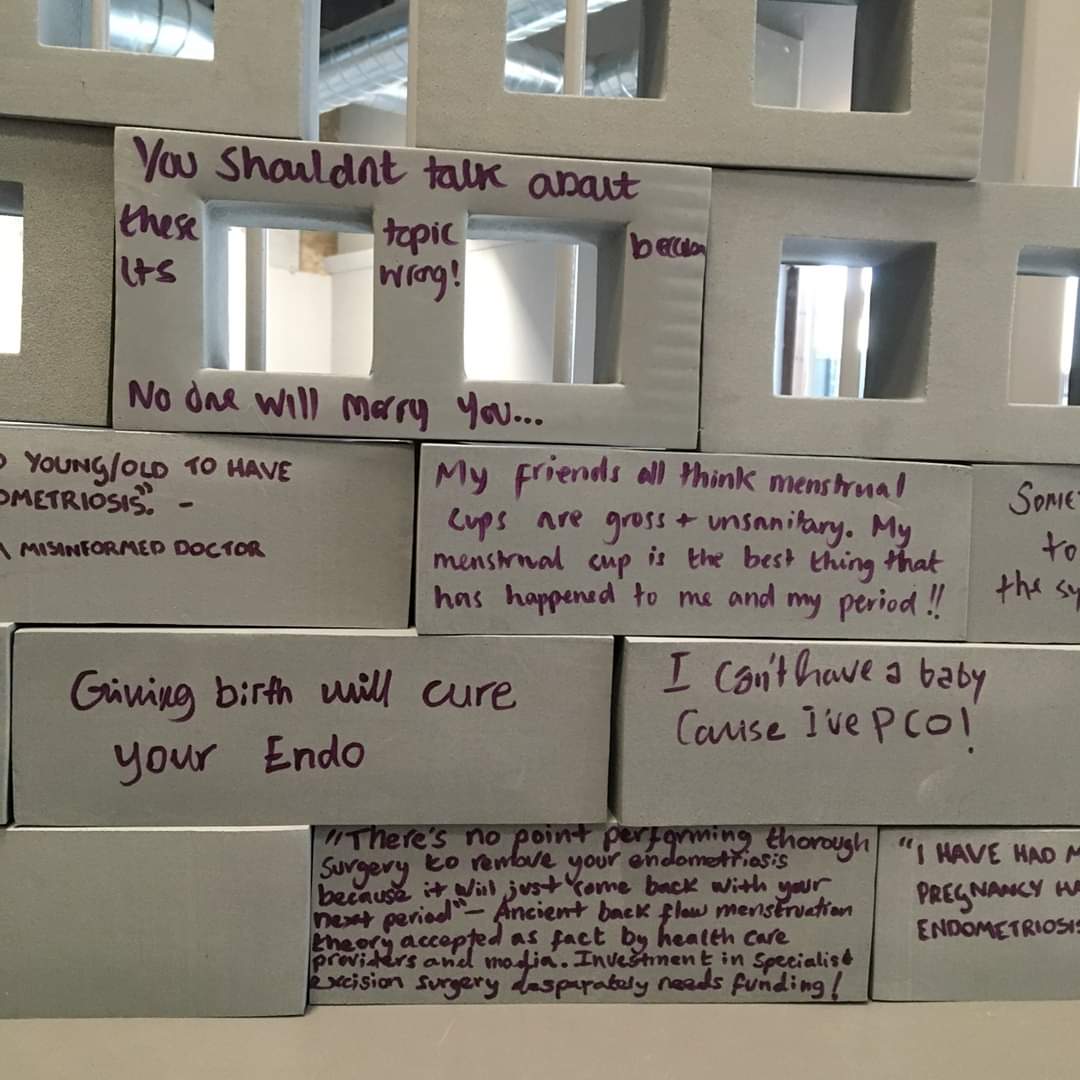 You shouldnt talk about
these topic
its wrong!
No one will marry you...
YOUNG/OLD TO HAVE
OMETRIOSIS". -
MISINFORMED DOCTOR
My friends all think menstrual
cups are gross + unsanitary. My
menstrual cup is the best thing that
has happened to me and my period!!
to
the
Giving birth will cure
your Endo
I can't have a baby
Cause I've PCO!
"There's no point performing thorough
surgery to remove your endometriosis
because it will just come back with your
next period" - Ancient back flow menstruation
theory accepted as fact by health care
providers and madia. Investment in specialist
excision surgery desparately needs funding!
"I HAVE HAD
PREGNANCY
ENDOMETRIOSIS